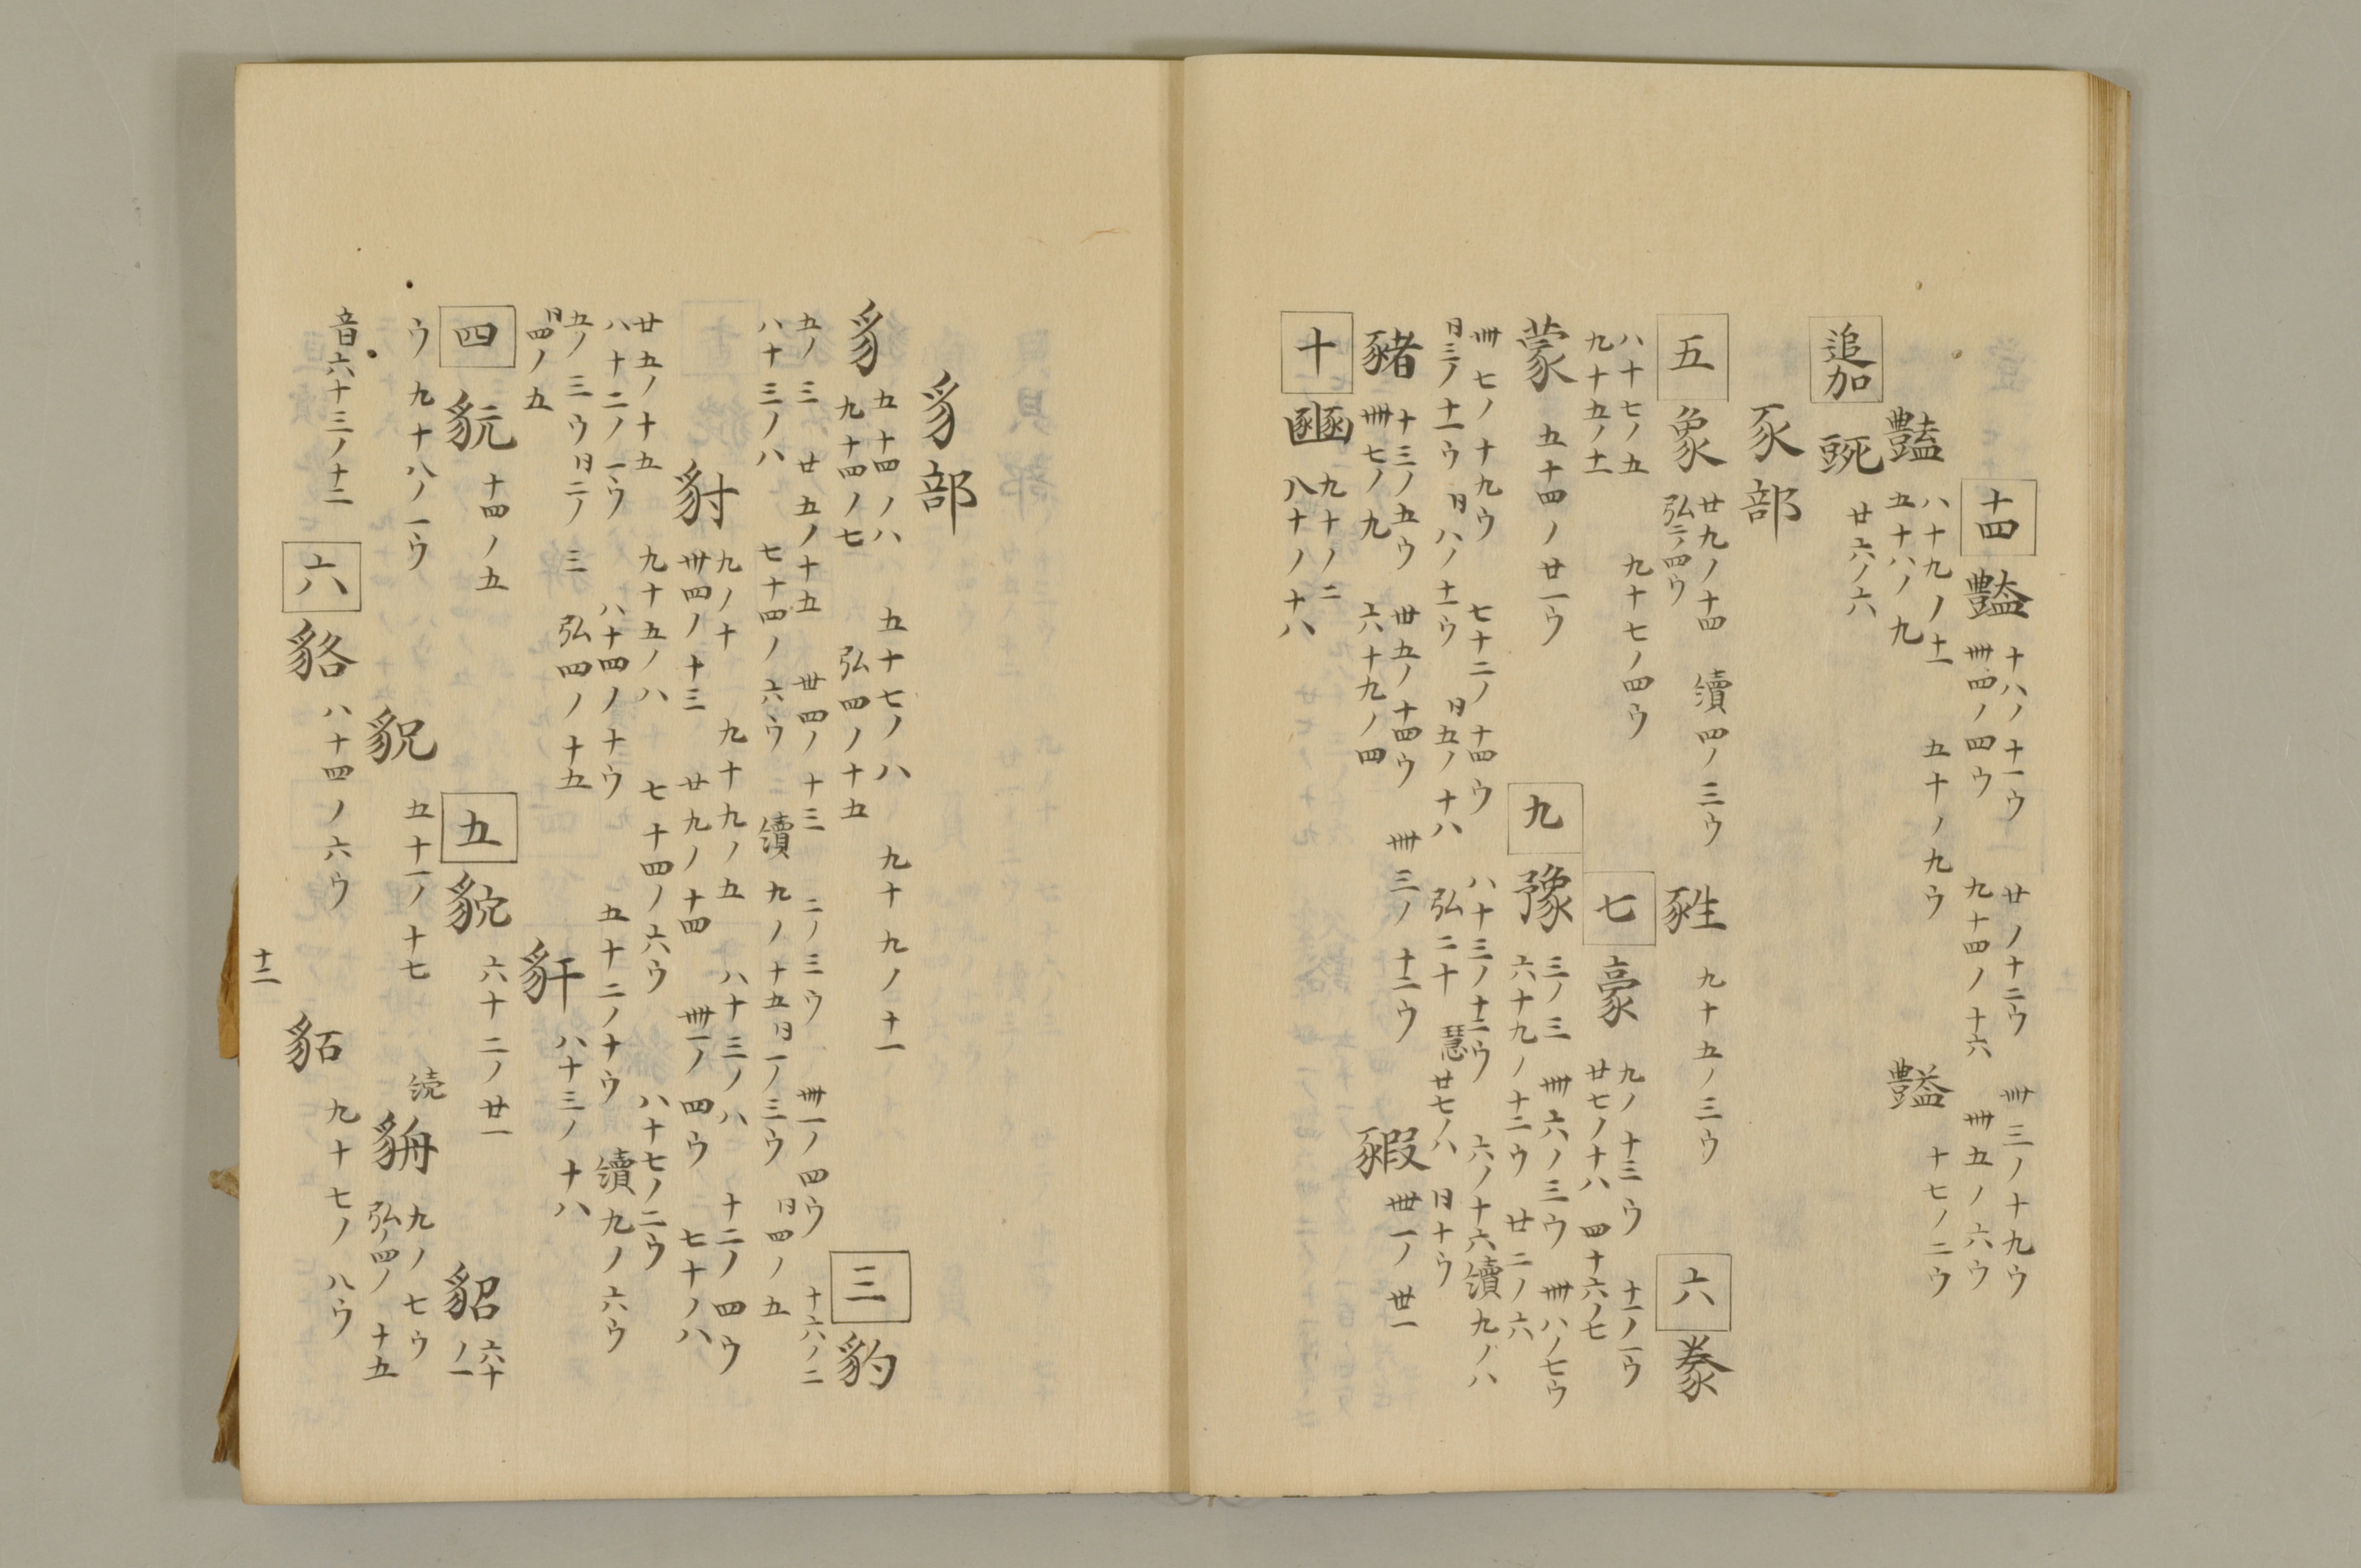 十四 豔 十八ノ十一ウ 廿ノ十二ウ 卅三ノ十九ウ
卌四ノ四ウ 九十四ノ十六 卌五ノ六ウ
豔 八十九ノ十一 五十ノ九ウ 豔 十七ノ二ウ
五十八ノ九
追加 豌 廿六ノ六
豕部
五 象 廿九ノ十四 續四ノ三ウ 九十五ノ三ウ 六 豢
弘二ノ四ウ
八十七ノ五 九十七ノ四ウ 七 豪 九ノ十三ウ 十一ノ一ウ
九十五ノ十一 廿七ノ十八 四十六ノ七
蒙 五十四ノ廿一ウ 九 豫 三ノ三 卌六ノ三ウ 卌八ノ七ウ
六十九ノ十二ウ 廿二ノ六
卌七ノ十九ウ 七十二ノ十四ウ 八十三ノ十二ウ 六ノ十六 續九ノ八
日三ノ十一ウ 日八ノ十一ウ 日五ノ十八 弘二十 慧廿七ノ八 日十ウ
豬 十三ノ五ウ 丗五ノ十四ウ 卌三ノ十二ウ 豭 丗一ノ丗一
卌七ノ九 六十九ノ四
十 豳 九十ノ二
八十ノ十八
豸部
豸 五十四ノ八 五十七ノ八 九十九ノ十一 三 豹
九十四ノ七 弘四ノ十五
五ノ三 廿五ノ十五 丗四ノ十三 二ノ三ウ 卌一ノ四ウ 十六ノ二
八十三ノ八 七十四ノ六ウ 續九ノ十五 日一ノ三ウ 日四ノ五
豺 九ノ十 九十九ノ五 八十三ノ八 十二ノ四ウ
卌四ノ十三 廿九ノ十四 卌一ノ四ウ 七十ノ八
廿五ノ十五 九十五ノ八 七十四ノ六ウ 八十七ノ二ウ
八十二ノ一ウ 八十四ノ十ウ 五十二ノ十ウ 續九ノ六ウ
五ノ三ウ 日二ノ三 弘四ノ十五 豻 八十三ノ十八
日四ノ五
四 豼 十四ノ五 五 貁 六十二ノ廿一 貂 六十ノ一
ウ 九十八ノ一ウ 貎 五十一ノ十七 続 九ノ七ウ
弘ノ四ノ十五
音六十三ノ十二 六 貉 八十四ノ六ウ 貊 九十七ノ八ウ
十二